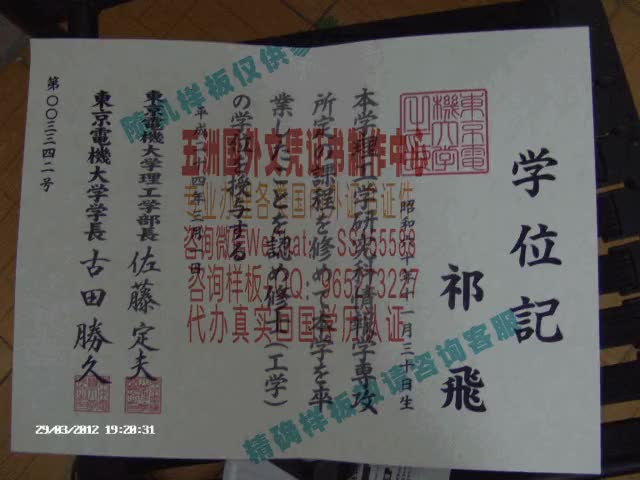 学位記
祁飛
昭和六十年十一月三十日生
本学理工学研究科情報学専攻
所定の課程を修めて本学を卒
業したことを認め修士(工学)
の学位を授与する
平成二十四年三月 日
東京電機大学理工学部長 佐藤定夫
東京電機大学学長 古田勝久
第〇〇三三四二号
東京電機大学
随机样板仅供参考
五洲国外文凭证书制作中心
代办真实回国学历认证
精确样板敬请咨询客服
29/03/2012 19:20:31